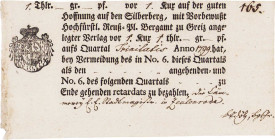 1. Thlr. gr. pf. vor 1. Kux auf der guten 165.
Hoffnung auf den Silberberg, mit Vorbewußt
Hochfürstl. Reuß. Pl. Bergamt zu Greiz ange
legter Verlag vor 1 Kux 1 thlr. gr. pf.
aufs Quartal Trinitatis Anno 1799 hat,
bey Vermeidung des in No. 6. dieses Quartals
als den angehenden- und
No. 6. des folgenden Quartals
zu Ende gehenden retardats zu bezahlen,
in Zeulenroda